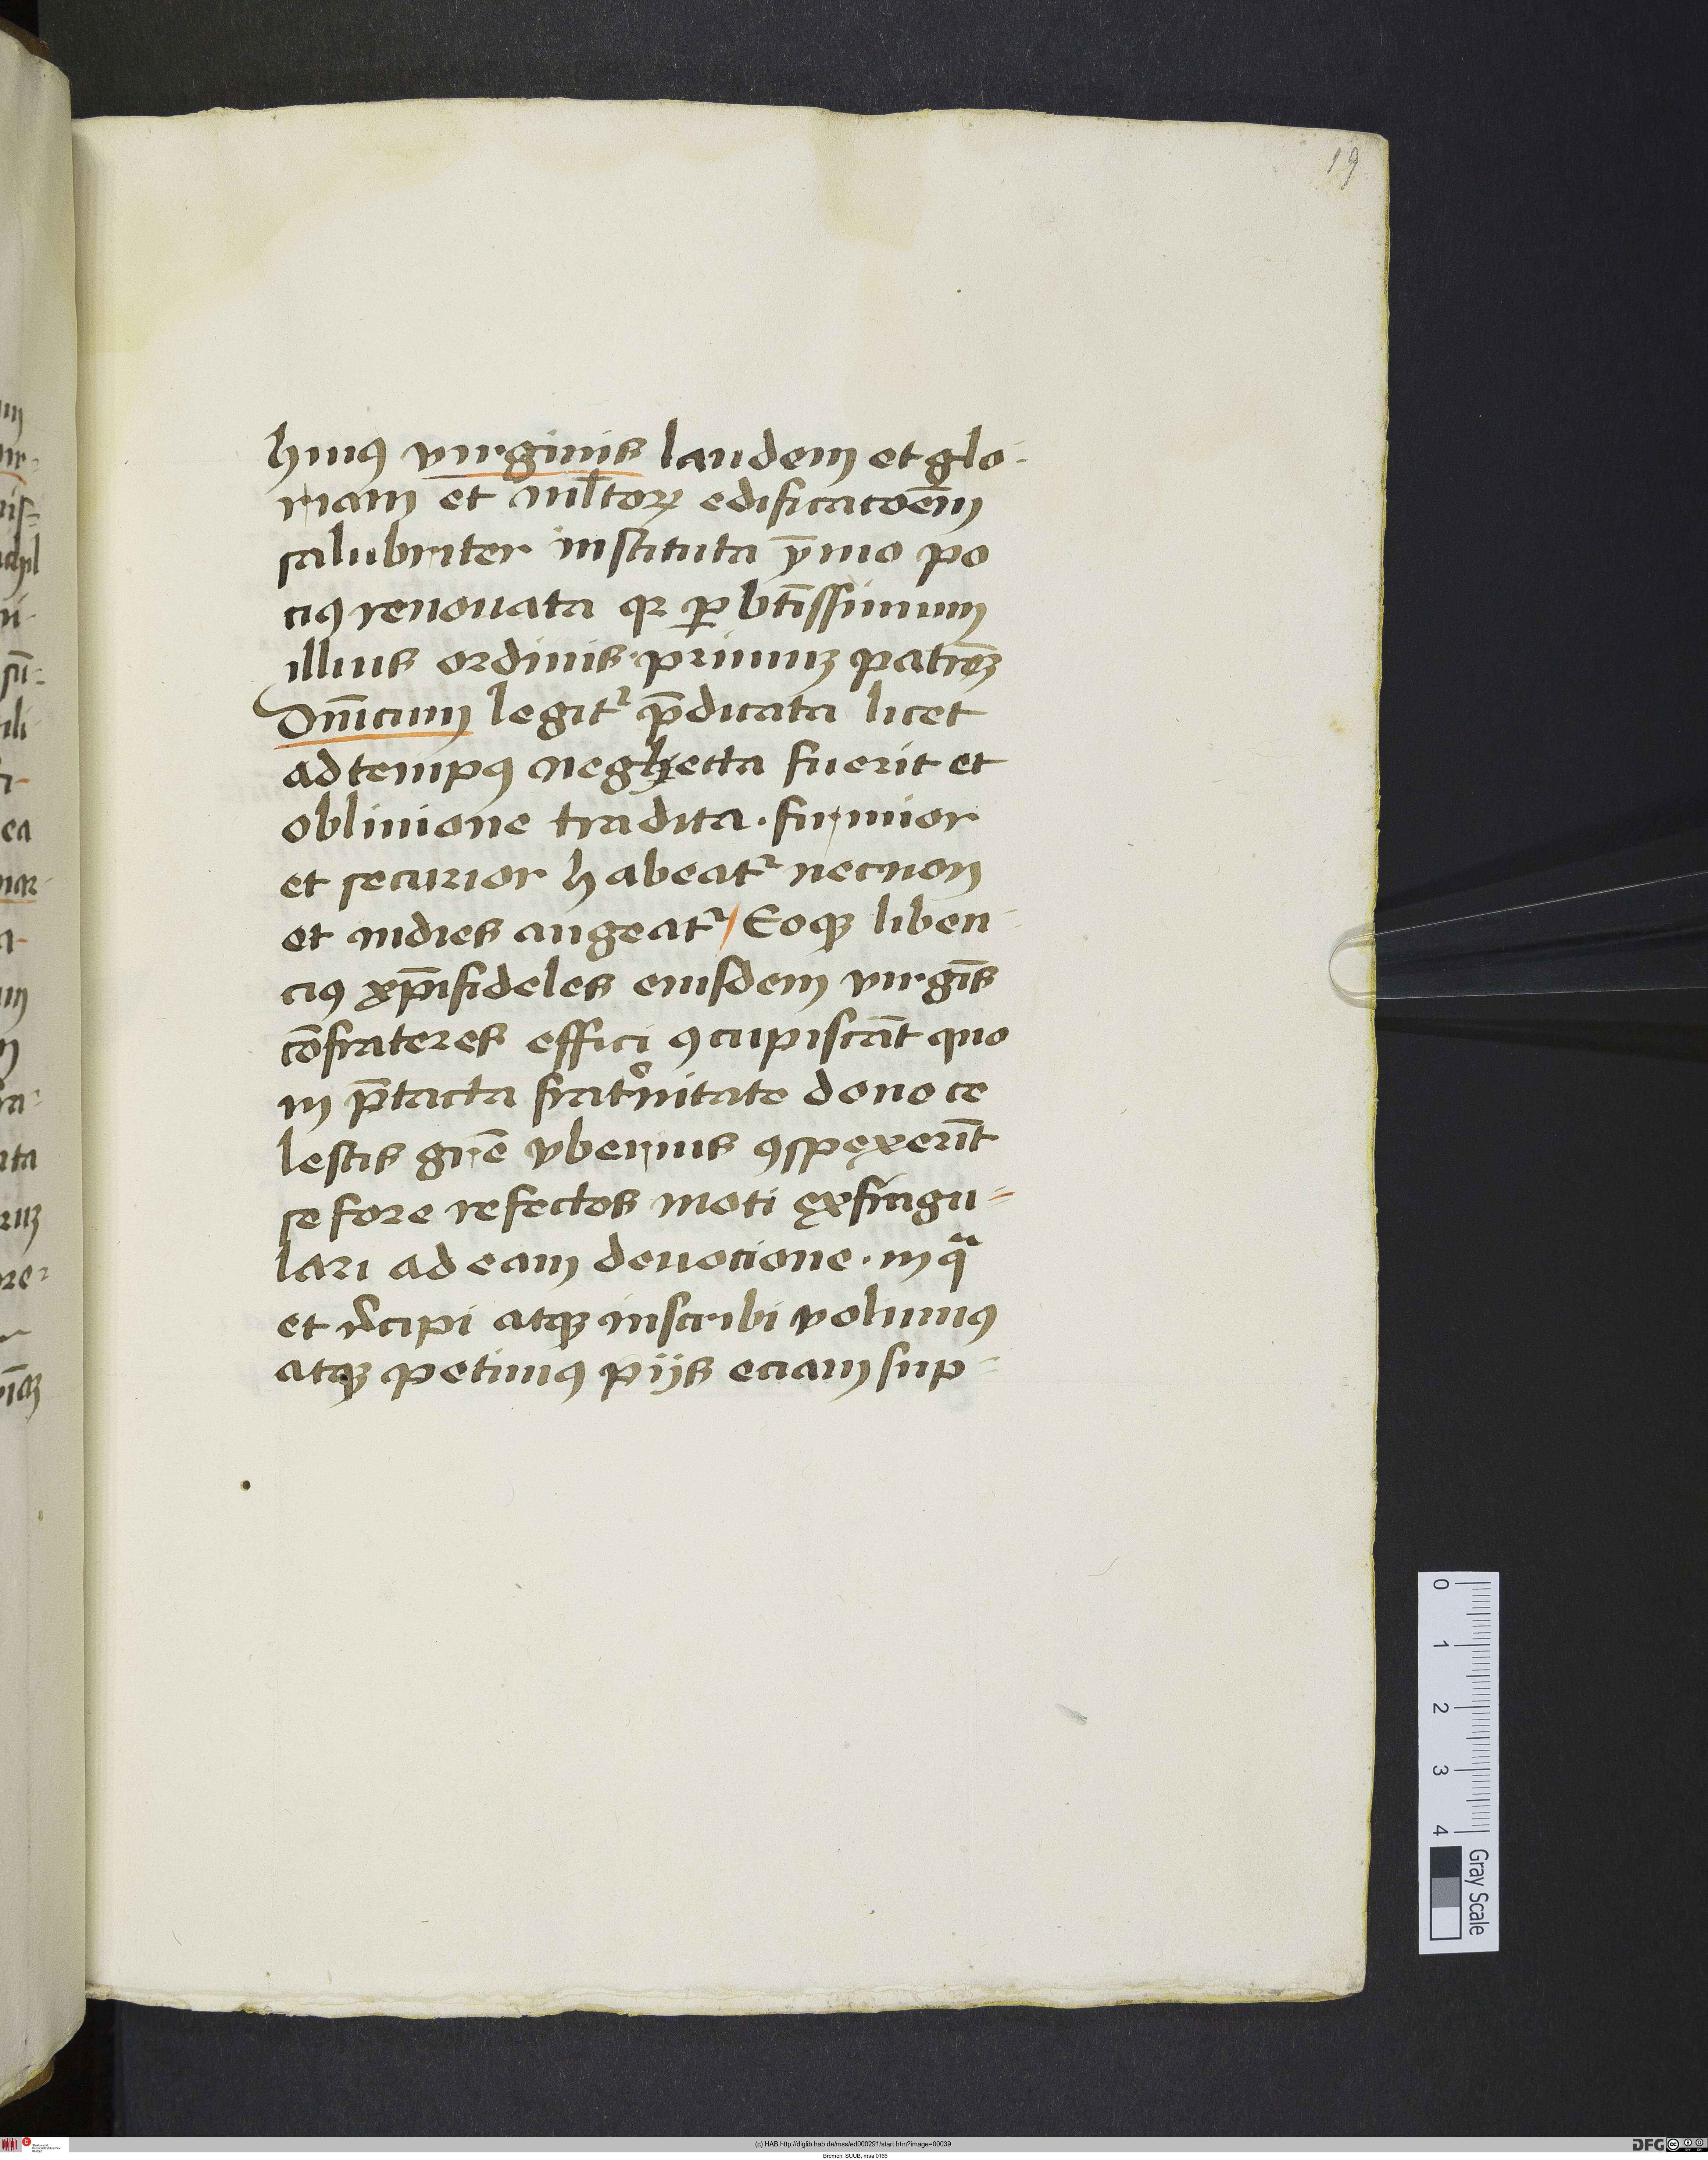 19
huiꝰ virginis laudem et glo-
riam et mĺtoꝝ edificatōem
salubriter instituta ẏmo po
ciꝰ renouata qꝛ ꝑ btīssimum
illius ordinis primuꝫ patrēꝫ
Dn̄icum legitᷣ p̄dicata licet
ad tempꝰ neglecta fuerit et
obliuione tradita. firmior
et securior habeatᷣ necnon
et indies augeatᷣ / Eoqꝫ liben-
ciꝰ xp̄ifideles eiusdem virgīs
cōfrateres effici ꝯcupiscāt quo
in p̄tacta frat͛nitate dono ce
lestis gr̄e vberius ꝯspexerīt
se fore refectos moti ex singu=
lari ad eam deuocione. in qᷓ
et r̄cipi atqꝫ inscribi volumꝰ
atqꝫ petimꝰ pijs eciam sup=
0 1 2 3 4
Gray Scale
(c) HAB http://diglib.hab.de/mss/ed000291/start.htm?image=00039
Bremen, SUUB, msa 0166
DFG